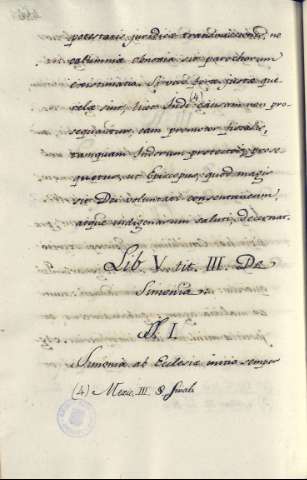 potestatis juridicæ transmissionis, ne
calumniæ obnoxia sit parochorum
existimatio. Si vero foræ justæ que
relæ sint, licet Indi (4) causam non pro
sequantur, eam promotor fiscalis,
tamquam Indorum protector, prose
quetur, ut Episcopus, quod magis
sit Dei voluntati consentaneum,
atque indigenarum saluti, decernat.
Lib. V. tit. III. De
Simonia.
§. I.
Simonia ab Eclesiæ initio semper
(4) Mexic. III. § finali